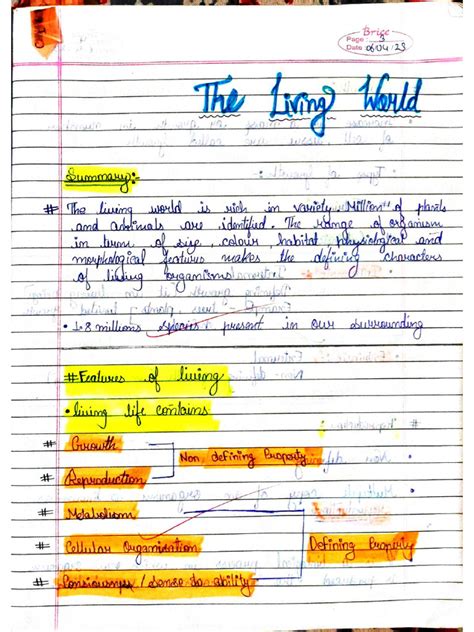 Page 3
Date 06/04/23
The Living World
Summary:-
# The living world is rich in variety. Million" of plants
and animals are identified. The range of organism
in term of size, colour habitat, physiological and
morphological features makes the defining characters
of living organisms
• 1.8 millions species present in our surrounding
# Features of living
• living life contains
# Growth
Non. defining Property
# Reproduction
# Metabolism
# Cellular Organisation
Defining Property
# Consiousness / sense do ability